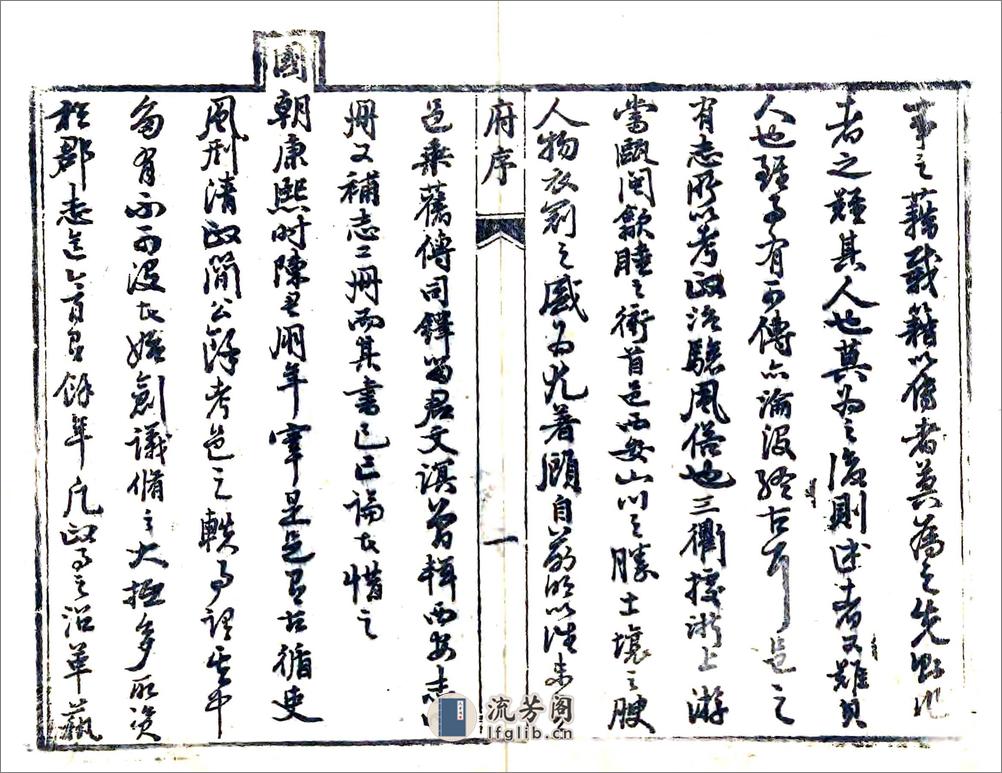 事之藉載籍以傳者莫為之先
者之難其人也莫為之後則述者又難其
人也雖事有可傳亦淪沒終古耳邑之
有志所以考政治驗風俗也三衢據浙上游
當甌閩歙睦之衝首邑西安山川之勝土壤之腴
人物衣冠之盛為尤著顧自前明以法未
府序
一
邑乘舊傳司鐸留君文溟曾輯西安志
冊又補志二冊而其書已亡論者惜之
國朝康熙時陳君鵬年宰是邑有古循吏
風刑清政簡公餘考邑之軼事謂其中
多有不可沒者始創議脩之大抵多取資
於郡志迄今百有餘年凡政事之沿革藝
流芳阁
lfglib.cn